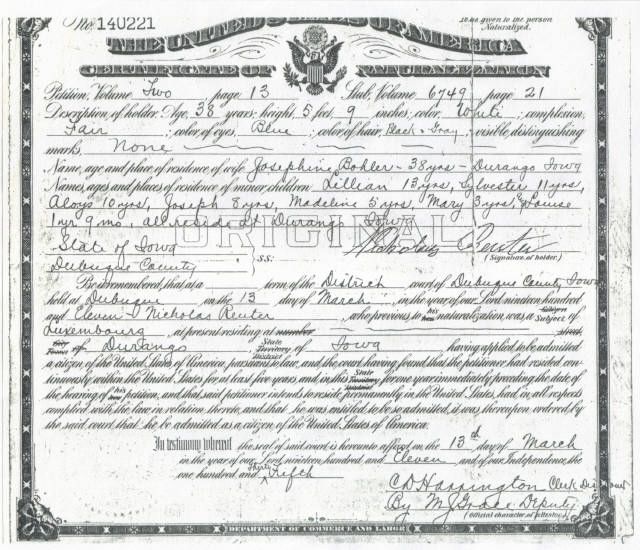 No. 140221
To be given to the person Naturalized.
THE UNITED STATES OF AMERICA
CERTIFICATE OF NATURALIZATION
Petition, Volume Two page 13 Stub, Volume 6749 page 21
Description of holder: Age, 38 years; height, 5 feet 9 inches; color, White; complexion,
Fair; color of eyes, Blue; color of hair, Black & Gray; visible distinguishing
marks, None
Name, age and place of residence of wife Josephine Bohler - 38 yrs - Durango Iowa
Names, ages and places of residence of minor children Lillian 13 yrs, Sylvester 11 yrs,
Aloys 10 yrs, Joseph 8 yrs, Madeline 5 yrs, Mary 3 yrs, & Louise
1 yr 9 mo, all reside at Durango Iowa
ORIGINAL
State of Iowa
Dubuque County
S.S:
Nicholas Reuter
(Signature of holder.)
Be it remembered, that at a term of the District court of Dubuque County Iowa
held at Dubuque on the 13 day of March in the year of our Lord nineteen hundred
and Eleven Nicholas Reuter, who previous to his her naturalization was a Citizen Subject of
Luxembourg, at present residing at number street,
City Town of Durango, State Territory District of Iowa having applied to be admitted
a citizen of the United States of America pursuant to law, and the court having found that the petitioner had resided con-
tinuously within the United States for at least five years and in this State Territory District for one year immediately preceding the date of
the hearing of his her petition, and that said petitioner intends to reside permanently in the United States, had in all respects
complied with the law in relation thereto, and that he was entitled to be so admitted, it was thereupon ordered by
the said court that he be admitted as a citizen of the United States of America.
In testimony whereof the seal of said court is hereunto affixed on the 13th day of March
in the year of our Lord nineteen hundred and Eleven and of our Independence, the
one hundred and thirty Fifth
C D Harrington Clerk Dis Court
By M J Grace Deputy
(Official character of attestor.)
DEPARTMENT OF COMMERCE AND LABOR